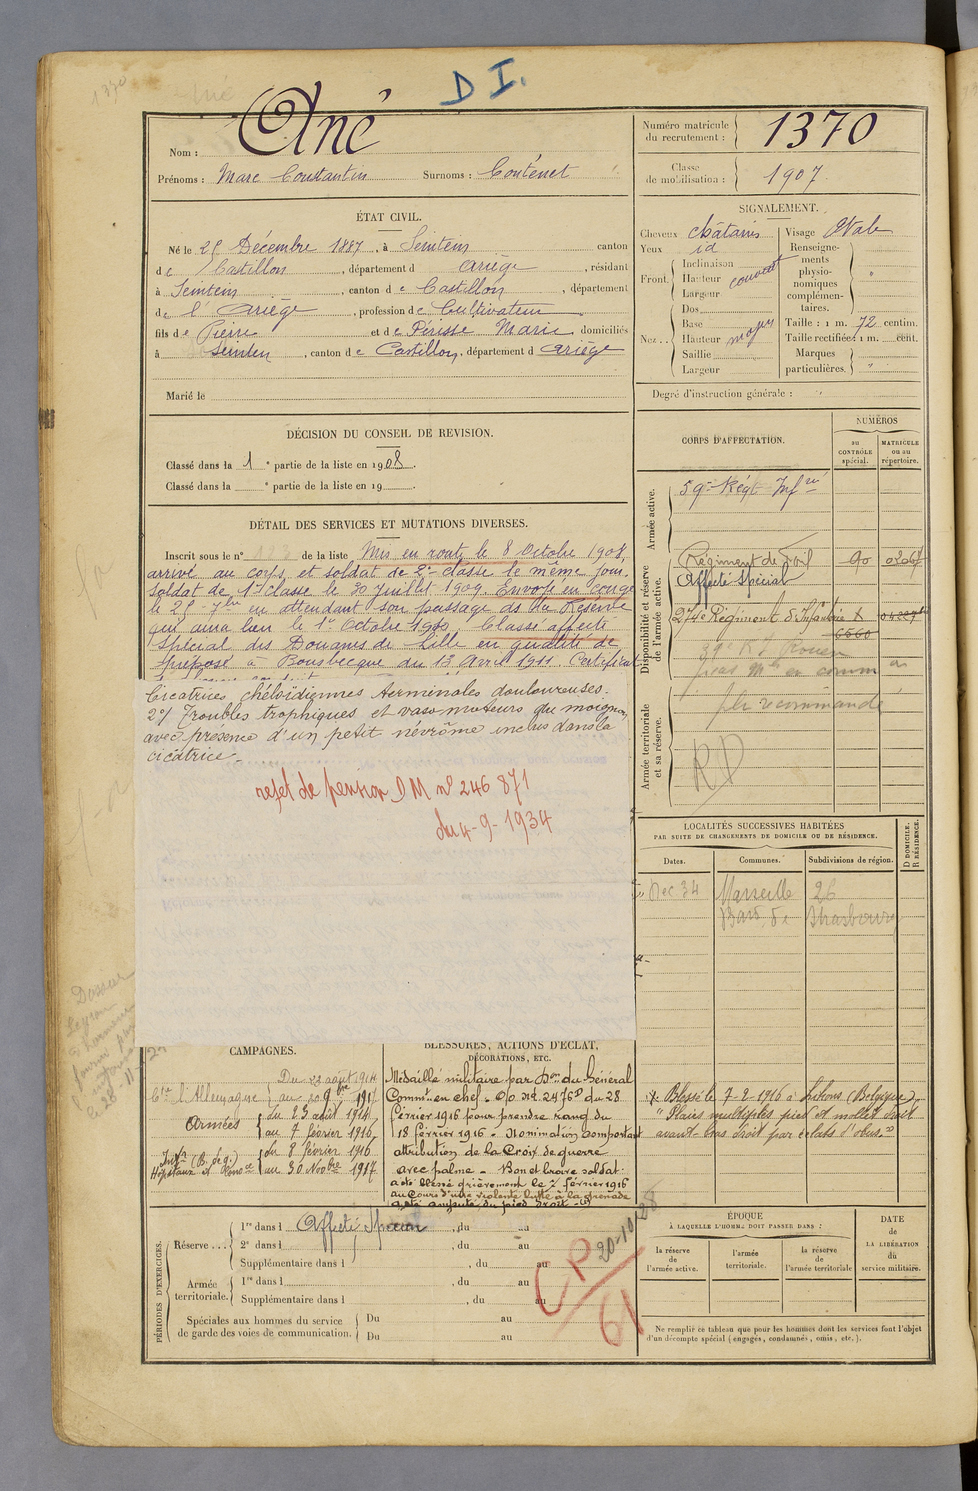 D I.
Nom : Ané
Prénoms : Marc Constantin Surnoms : Conténet
Numéro matricule du recrutement : 1370
Classe de mobilisation : 1907
ÉTAT CIVIL.
Né le 25 Décembre 1887, à Sentein canton
de Castillon, département d Ariège, résidant
à Sentein, canton de Castillon, département
de l'Ariège, profession de Cultivateur
fils de Pierre et de Périsse Marie domiciliés
à Sentein, canton de Castillon, département d Ariège
Marié le
SIGNALEMENT.
Cheveux châtains
Yeux id
Front. Inclinaison
Hauteur couvert
Largeur
Nez.. Dos
Base
Hauteur moyen
Saillie
Largeur
Visage Ovale
Renseignements physionomiques complémentaires.
Taille : 1 m. 72 centim.
Taille rectifiée : 1 m. cent.
Marques particulières.
Degré d'instruction générale :
DÉCISION DU CONSEIL DE REVISION.
Classé dans la 1e partie de la liste en 1908.
Classé dans la e partie de la liste en 19 .
DÉTAIL DES SERVICES ET MUTATIONS DIVERSES.
Inscrit sous le n° de la liste Mis en route le 8 Octobre 1908
arrivé au corps et soldat de 2e classe le même jour.
Soldat de 1re classe le 30 Juillet 1909. Envoyé en congé
le 25 7bre en attendant son passage ds la Réserve
qui aura lieu le 1er Octobre 1910. Classé affecté
spécial des Douanes de Lille en qualité de
préposé à Bousbecque du 13 Avril 1911. Certificat
Cicatrices chéloïdiennes terminales douloureuses.
2°/ Troubles trophiques et vaso-moteurs du moignon
avec présence d'un petit névrôme inclus dans la
cicatrice.
rejet de pension DM n° 246 871
du 4-9-1934
CORPS D'AFFECTATION.
NUMÉROS
au contrôle spécial.
matricule ou au répertoire.
Armée active.
59e Régt Infrie
Disponibilité et réserve de l'armée active.
Affecté Spécial
274e Régiment d'Infanterie
6560
Armée territoriale et sa réserve.
RD
LOCALITÉS SUCCESSIVES HABITÉES
PAR SUITE DE CHANGEMENTS DE DOMICILE OU DE RÉSIDENCE.
Dates. Communes. Subdivisions de région. D DOMICILE. R RÉSIDENCE.
Dec 34 Marseille 26
Bard de Strasbourg
Blessé le 7-2-1916 à (Belgique)
"Plaies multiples pied et mollet droit
avant-bras droit par éclats d'obus."
CAMPAGNES.
Du 22 août 1914
Ctre l'Allemagne au
Armées du 23 août 1914
au 7 février 1916
Intr (B. de g.) du 8 février 1916
au 30 Novbre 1917
BLESSURES, ACTIONS D'ÉCLAT, DÉCORATIONS, ETC.
Médaillé militaire par Don du Général
Commt en chef. O/o n° 2476 D du 28
février 1916 pour prendre rang du
18 février 1916. Nomination comportant
attribution de la Croix de guerre
avec palme. Bon et brave soldat.
a été blessé grièvement le 7 février 1916
au cours d'une violente lutte à la grenade
a été amputé du pied droit.
PÉRIODES D'EXERCICES.
Réserve... 1re dans l Affecté Spécial, du au
2e dans l , du au
Supplémentaire dans l , du au
Armée territoriale. 1re dans l , du au
Supplémentaire dans l , du au
Spéciales aux hommes du service de garde des voies de communication. Du au
Du au
CP 61
20-10-28
ÉPOQUE
À LAQUELLE L'HOMME DOIT PASSER DANS :
la réserve de l'armée active.
l'armée territoriale.
la réserve de l'armée territoriale
DATE DE LA LIBÉRATION du service militaire.
Ne remplir ce tableau que pour les hommes dont les services font l'objet
d'un décompte spécial (engagés, condamnés, omis, etc.).